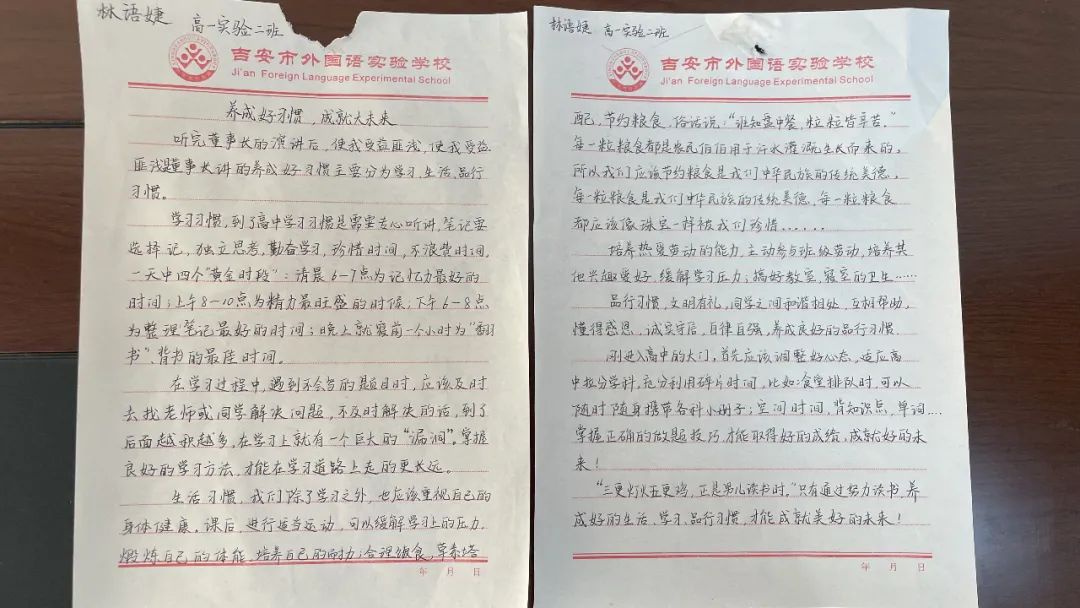 林语婕 高一实验二班
吉安市外国语实验学校
Ji'an Foreign Language Experimental School
养成好习惯，成就大未来
听完董事长的演讲后，使我受益匪浅，使我受益
匪浅董事长讲的养成好习惯主要分为学习、生活、品行
习惯。
学习习惯，到了高中学习习惯是需要专心听讲，笔记要
选择记，独立思考，勤奋学习，珍惜时间，不浪费时间，
一天中四个“黄金时段”：清晨6-7点为记忆力最好的
时间；上午8-10点为精力最旺盛的时候；下午6-8点
为整理笔记最好的时间；晚上就寝前一个小时为“翻
书”、背书的最佳时间。
在学习过程中，遇到不会写的题目时，应该及时
去找老师或同学解决问题，不及时解决的话，到了
后面越积越多，在学习上就有一个巨大的“漏洞”。掌握
良好的学习方法，才能在学习道路上走的更长远。
生活习惯，我们除了学习之外，也应该重视自己的
身体健康，课后，进行适当运动，可以缓解学习上的压力，
煅炼自己的体能，培养自己的耐力；合理饮食，荤素搭
年 月 日
林语婕 高一实验二班
吉安市外国语实验学校
Ji'an Foreign Language Experimental School
配，节约粮食，俗话说：“谁知盘中餐，粒粒皆辛苦。”
每一粒粮食都是农民伯伯用于汗水灌溉生长而来的，
所以我们应该节约粮食是我们中华民族的传统美德，
每一粒粮食是我们中华民族的传统美德，每一粒粮食
都应该像珠宝一样被我们珍惜......
培养热爱劳动的能力，主动参与班级劳动，培养其
他兴趣爱好，缓解学习压力；搞好教室，寝室的卫生......
品行习惯，文明有礼，同学之间和谐相处，互相帮助，
懂得感恩，诚实守信，自律自强，养成良好的品行习惯.
刚进入高中的大门，首先应该调整好心态，适应高
中拉分学科，充分利用碎片时间，比如：食堂排队时，可以
随时随身携带各科小册子；空闲时间，背知识点，单词....
掌握正确的做题技巧，才能取得好的成绩，成就好的未
来！
“三更灯火五更鸡，正是男儿读书时。”只有通过努力读书，养
成好的生活、学习、品行习惯，才能成就美好的未来！
年 月 日